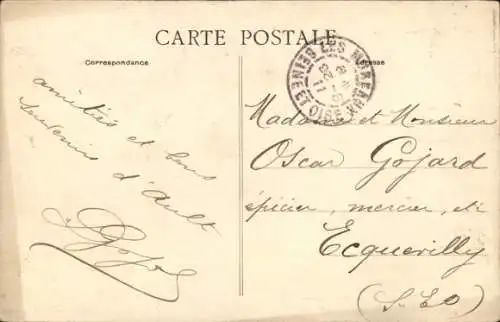 CARTE POSTALE
Correspondance
Adresse
LES MUREAUX
SEINE ET OISE
amitiés et bons
souvenirs d'Ault
Madame et Monsieur
Oscar Gojard
épicier, mercier, etc
Ecquevilly
(S.&O)